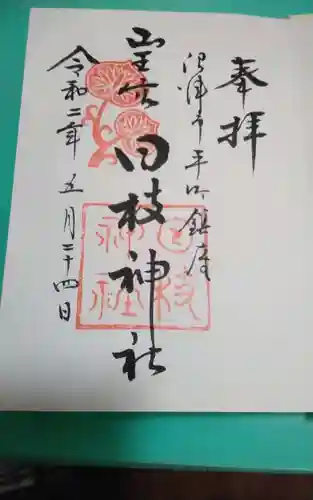 奉拝
沼津市平町鎮座
山王社
日枝神社
日枝
神社
令和二年五月二十四日